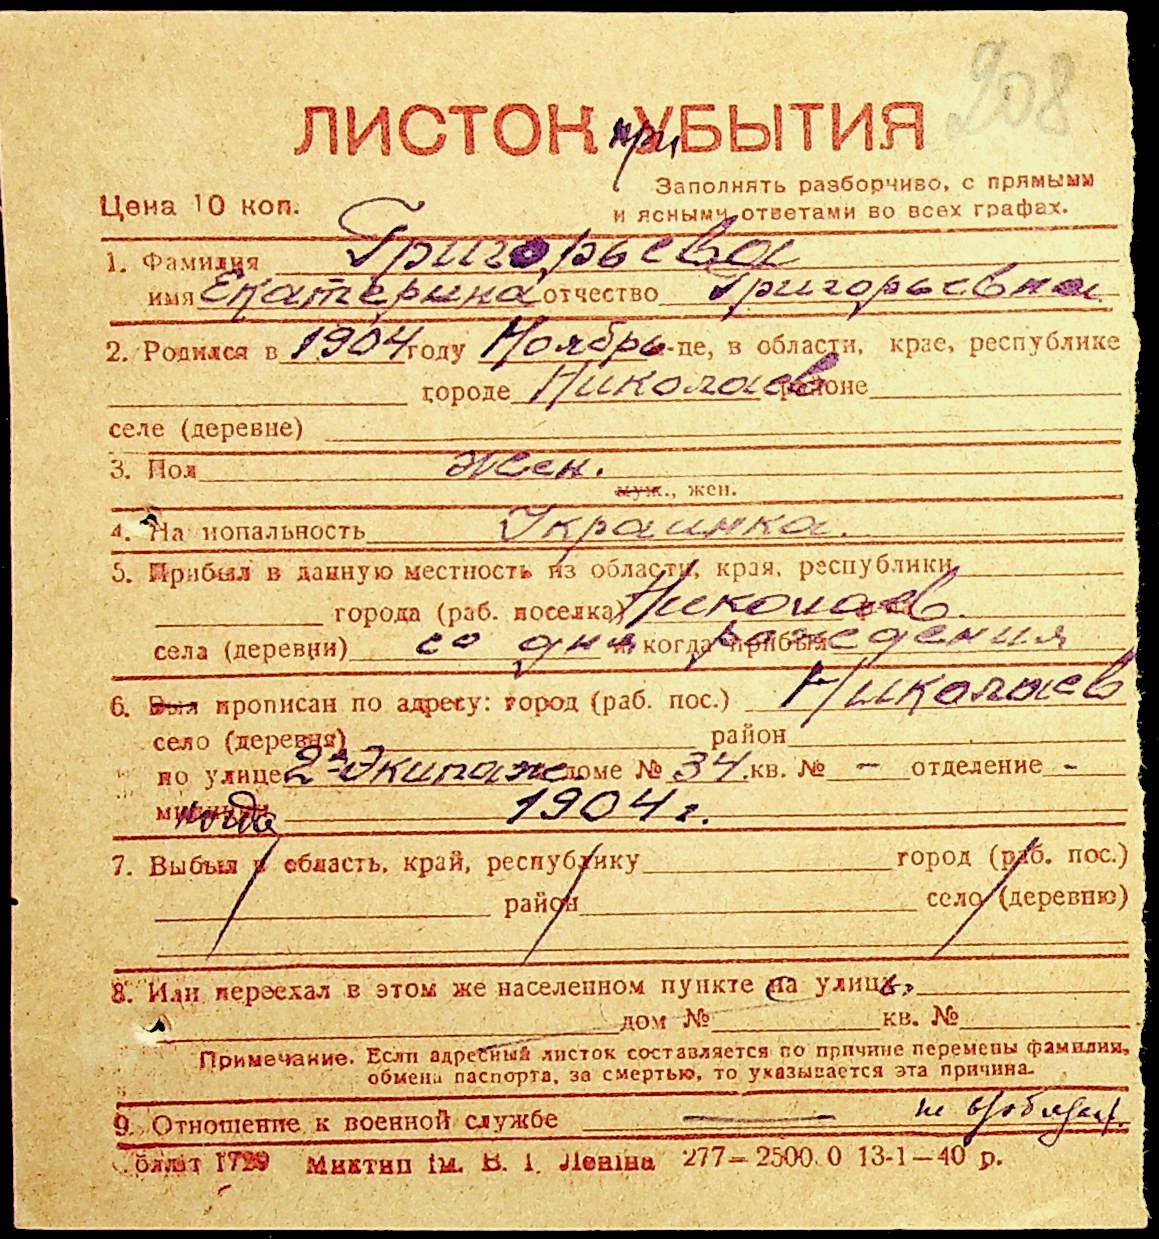 208
ЛИСТОК УБЫТИЯ
при
Цена 10 коп.
Заполнять разборчиво, с прямыми
и ясными ответами во всех графах.
1. Фамилия Григорьева
имя Екатерина отчество Григорьевна
2. Родился в 1904 году Ноябрь-це, в области, крае, республике
городе Николаев районе
селе (деревне)
3. Пол жен.
муж., жен.
4. На иональность Украинка.
5. Прибыл в данную местность из области, края, республики
города (раб. поселка) Николаев.
села (деревни) со дня и когда прибыл рождения
6. Был прописан по адресу: город (раб. пос.) Николаев
село (деревня) район
по улице 2я Экипаже доме № 34. кв. № - отделение -
милиции когда 1904 г.
7. Выбыл в область, край, республику город (раб. пос.)
район село (деревню)
8. Или переехал в этом же населенном пункте на улицу
дом № кв. №
Примечание. Если адресный листок составляется по причине перемены фамилии,
обмена паспорта, за смертью, то указывается эта причина.
9. Отношение к военной службе — не
1729 Миктип ім. В. І. Леніна 277—2500.0 13-1—40 р.